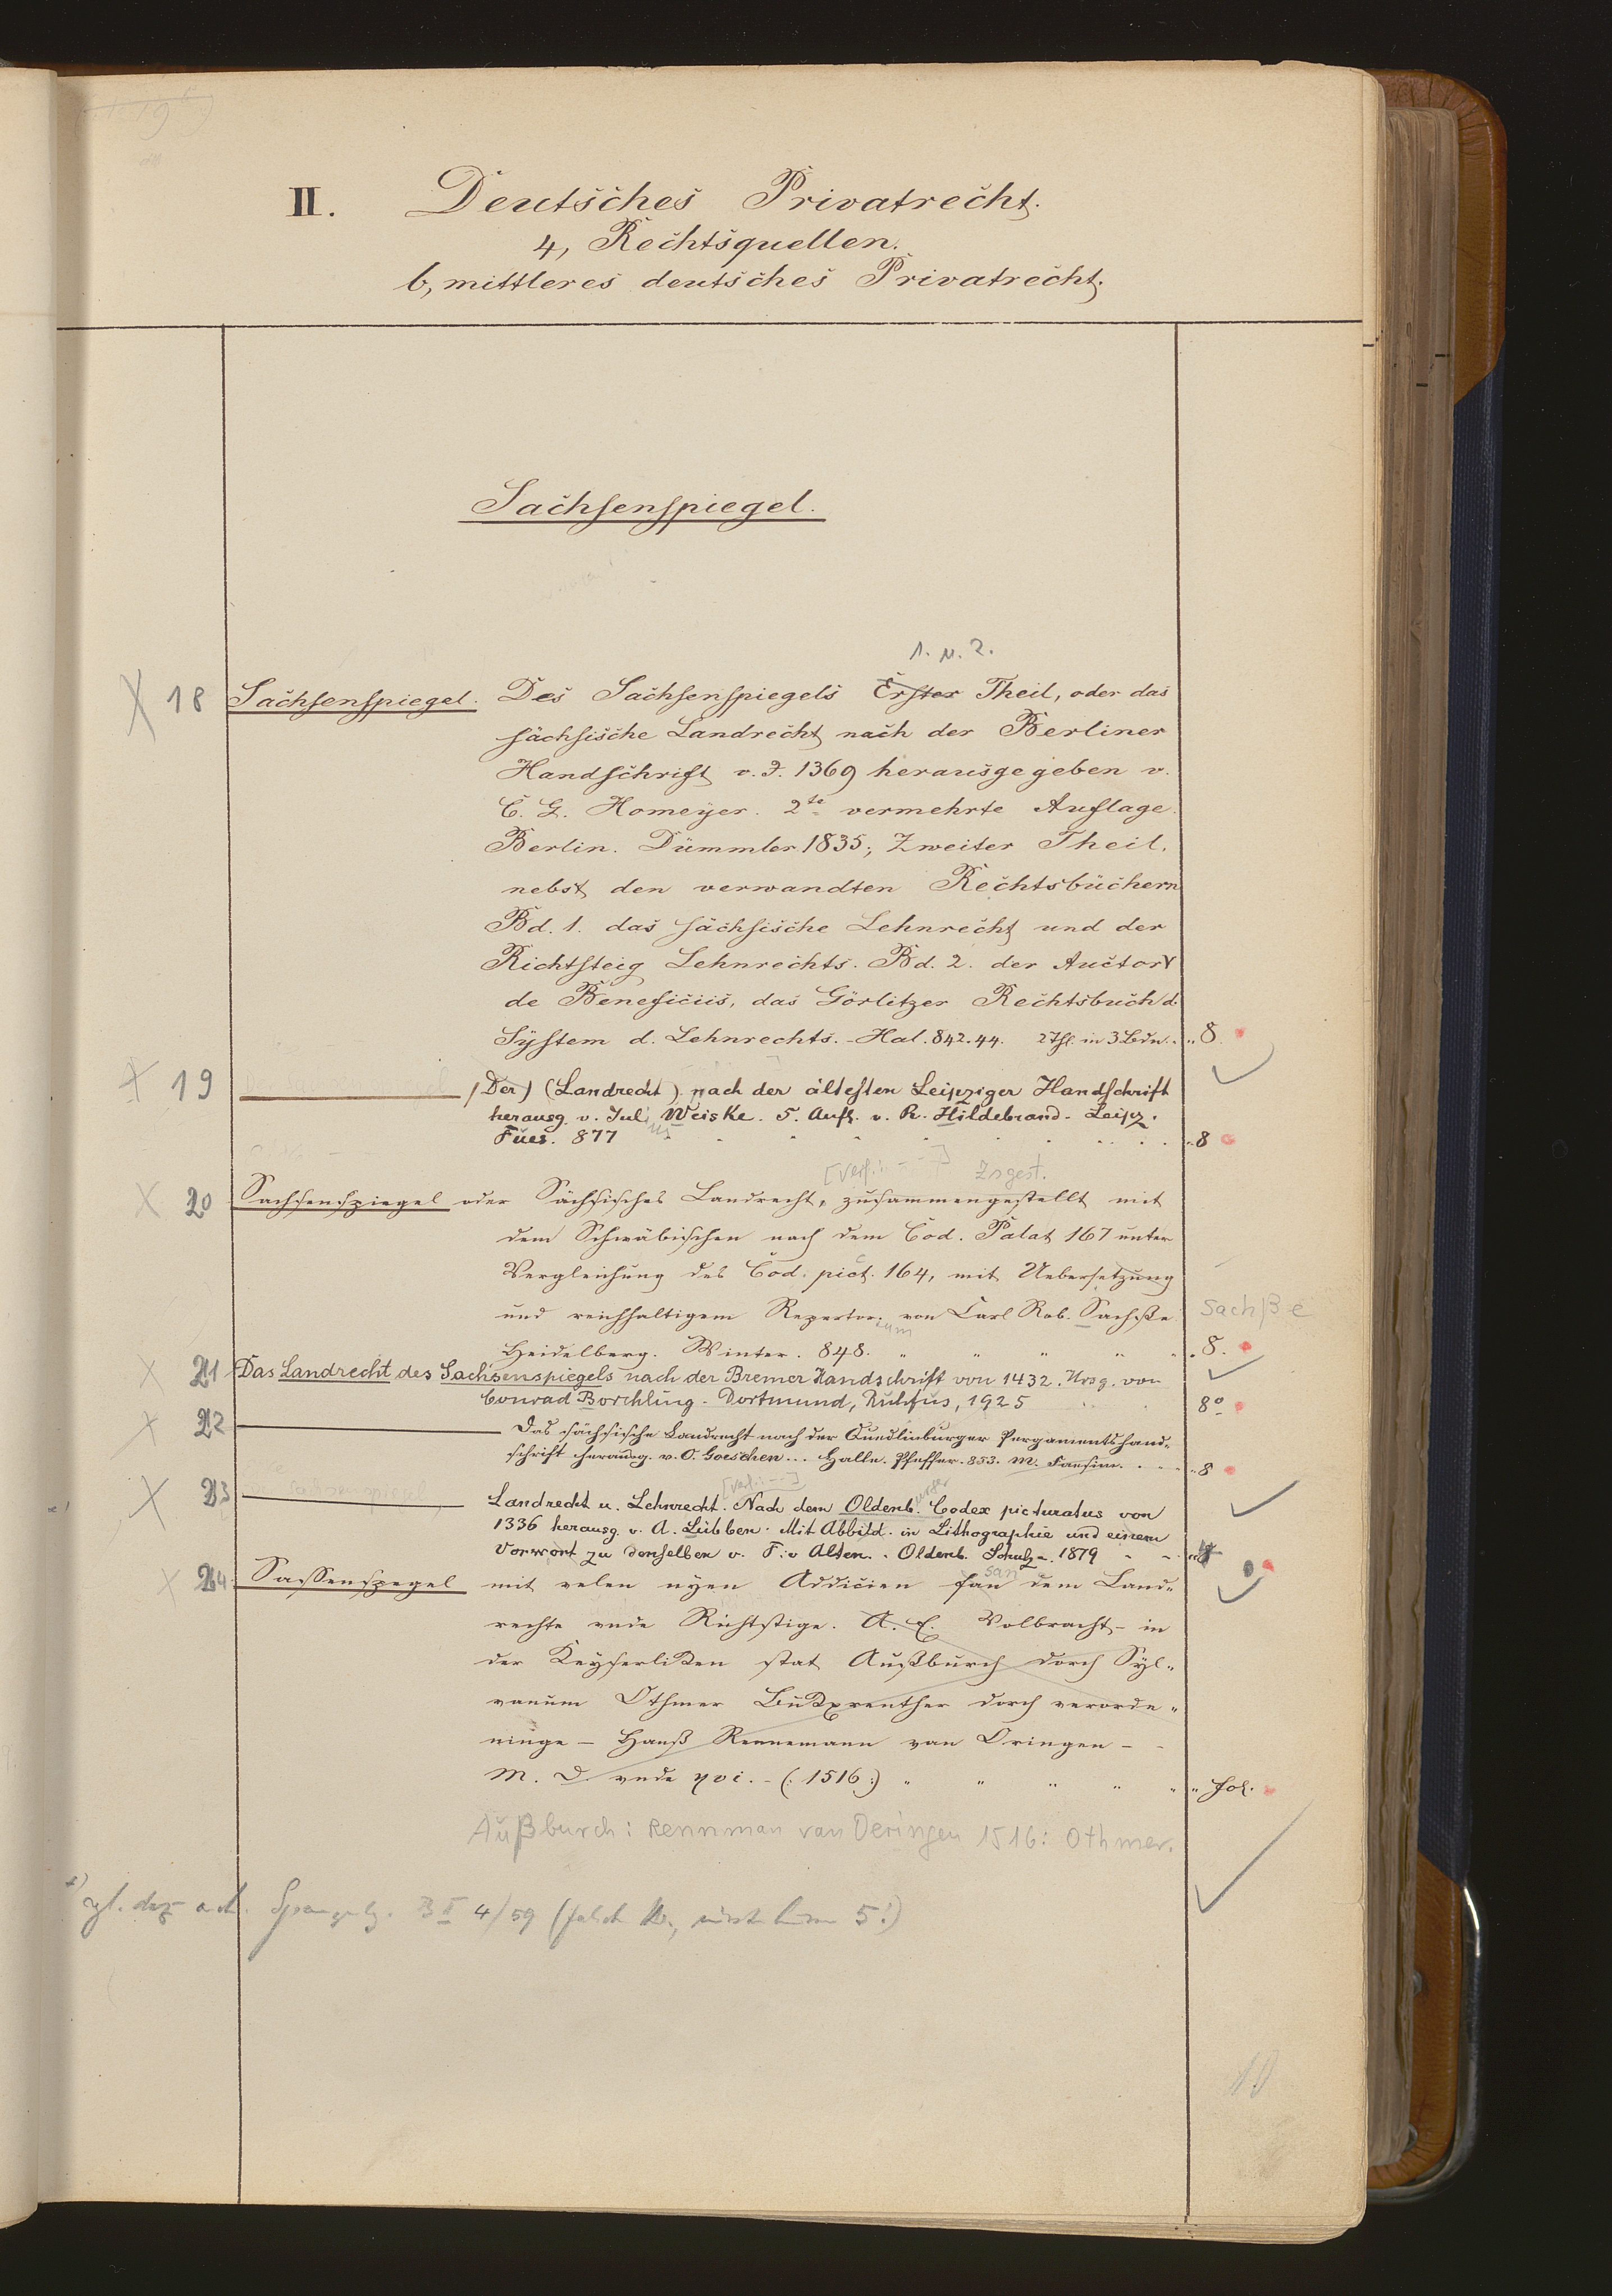 II. Deutsches Privatrecht.
4, Rechtsquellen.
b, mittleres deutsches Privatrecht.
Sachsenspiegel.
1. u. 2.
18 Sachsenspiegel. Des Sachsenspiegels Erster Theil, oder das
sächsische Landrecht nach der Berliner
Handschrift v. J. 1369 herausgegeben v.
C. G. Homeyer. 2te vermehrte Auflage.
Berlin. Dümmler 1835; Zweiter Theil.
nebst den verwandten Rechtsbüchern
Bd. 1. das sächsische Lehnrecht und der
Richtsteig Lehnrechts. Bd. 2. der Auctor
de Beneficiis, das Görlitzer Rechtsbuch d.
System d. Lehnrechts. - Hal. 842.44. 2 Thl. in 3 Bdn. 8.
19 (Der) (Landrecht) nach der ältesten Leipziger Handschrift
herausg. v. Julius Weiske. 5. Aufl. v. R. Hildebrand. Leipz.
Fues. 877 8
[Verf.: ---] Zsgest.
20 Sachsenspiegel oder Sächsisches Landrecht, zusammengestellt mit
dem Schwäbischen nach dem Cod. Palat 167 unter
Vergleichung des Cod. pict. 164, mit Uebersetzung
und reichhaltigem Repertorium von Carl Rob. Sachße Sachße
Heidelberg. Winter. 848. 8.
21 Das Landrecht des Sachsenspiegels nach der Bremer Handschrift von 1432. Hrsg. von
Conrad Borchling. Dortmund, Ruhfus, 1925 8°
22 Das sächsische Landrecht nach der Quedlinburger Pergamentshand-
schrift herausg. v. O. Goeschen... Halle. Pfeffer. 853. M. Facsim. 8
23 Sachsenspiegel, [Verf.: ---]
Landrecht u. Lehnrecht. Nach dem Oldenburger Codex picturatus von
1336 herausg. v. A. Lübben. Mit Abbild. in Lithographie und einem
Vorwort zu demselben v. F. v Alten. Oldenb. Schulze. 1879
24 Sassenspegel mit velen nyen Addicien san dem Land-
rechte unde Richtstige. A. E. Volbracht - in
der Keyserliken stat Außburch dorch Syl-
vanum Othmer Bukprenther dorch verorde-
ninge - Hanß Rennemann van Oringen -
M. D vnde xvi. - (: 1516 :) fol.
Außburch: Rennman van Oeringen 1516: Othmer.
4/59